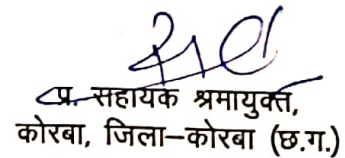 प्र. सहायक श्रमायुक्त,
कोरबा, जिला–कोरबा (छ.ग.)